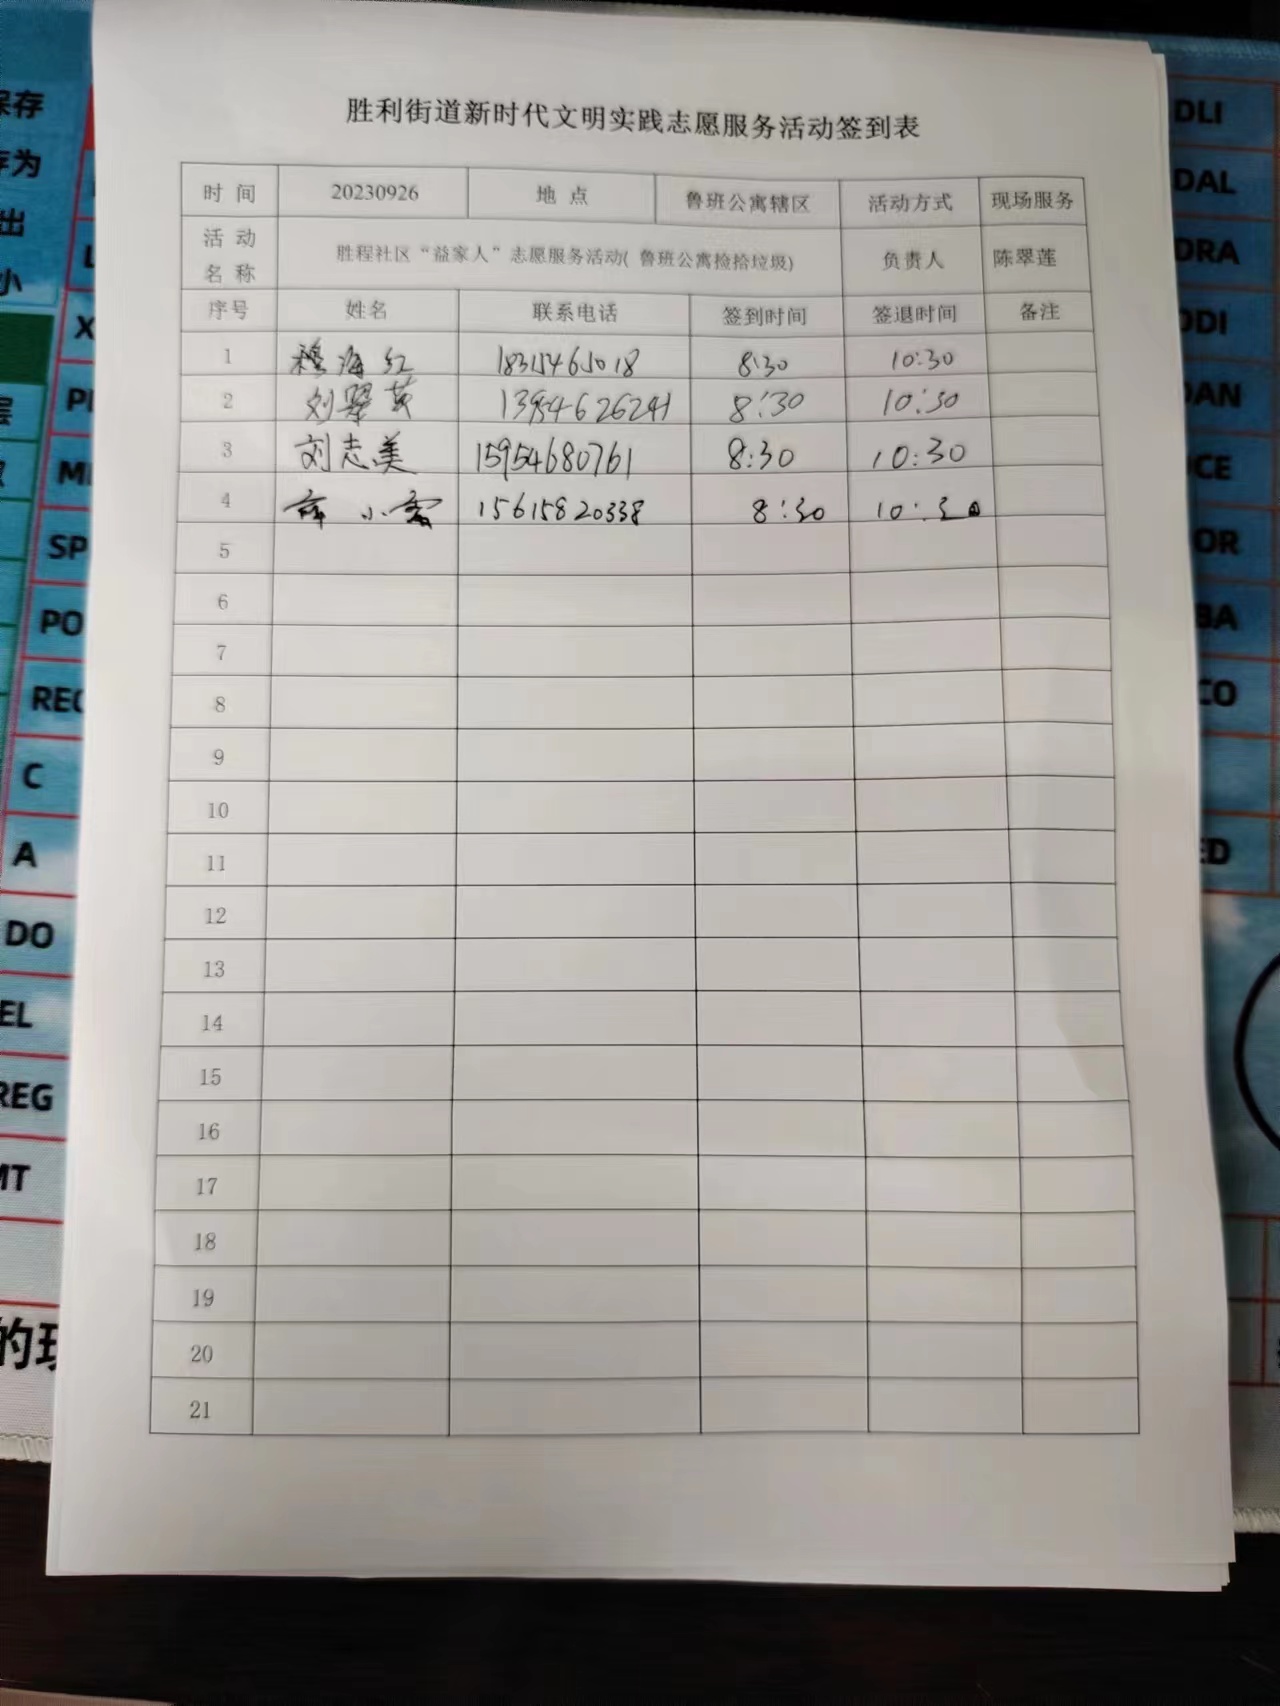 胜利街道新时代文明实践志愿服务活动签到表
时 间 20230926 地 点 鲁班公寓辖区 活动方式 现场服务
活 动 名 称 胜程社区“益家人”志愿服务活动( 鲁班公寓捡拾垃圾) 负责人 陈翠莲
序号 姓名 联系电话 签到时间 签退时间 备注
1 穆海红 18315465018 8:30 10:30
2 刘翠英 13954626241 8:30 10:30
3 刘志美 15954680761 8:30 10:30
4 薛小霞 15615820338 8:30 10:30
5
6
7
8
9
10
11
12
13
14
15
16
17
18
19
20
21
保存
存为
出
小
X
SP
PO
REC
C
A
DO
EL
REG
MT
DLI
DAL
DRA
DDI
OR
BA
CO
ED